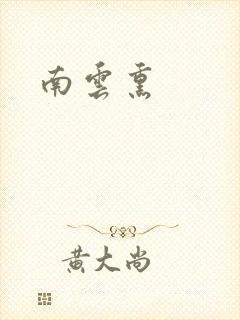 南雲熏
黄大尚